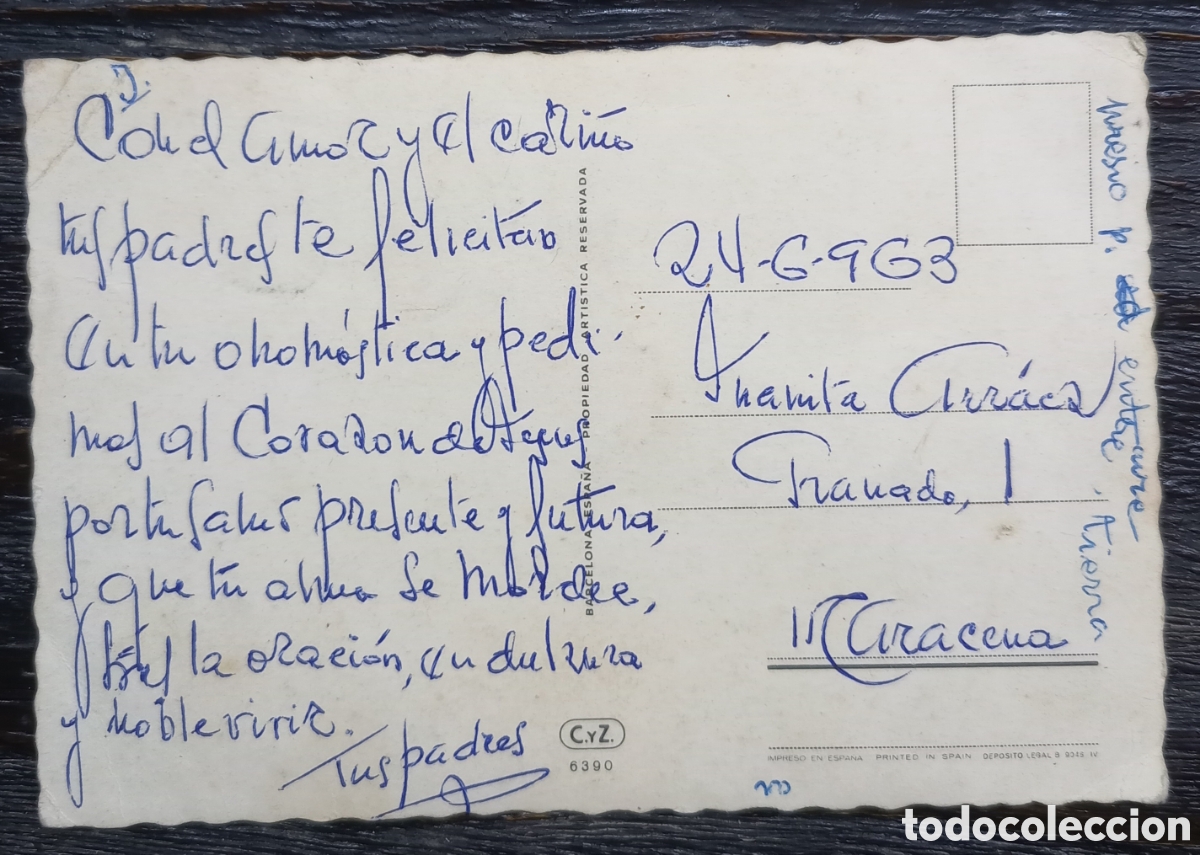 J.
Con el amor y el cariño
tus padres te felicitan
en tu onomástica y pedi-
mos al Corazon de Jesus
por tu salud presente y futura,
y que tu alma se moldee,
tras la oración, en dulzura
y noble vivir.
Tus padres
BARCELONA ESPAÑA PROPIEDAD ARTISTICA RESERVADA
C.YZ.
6390
24-6-963
Juanita Arráez
Granado, 1
Maracena
IMPRESO EN ESPAÑA PRINTED IN SPAIN DEPOSITO LEGAL B. 9045 IV
p. entre tierra
todocoleccion